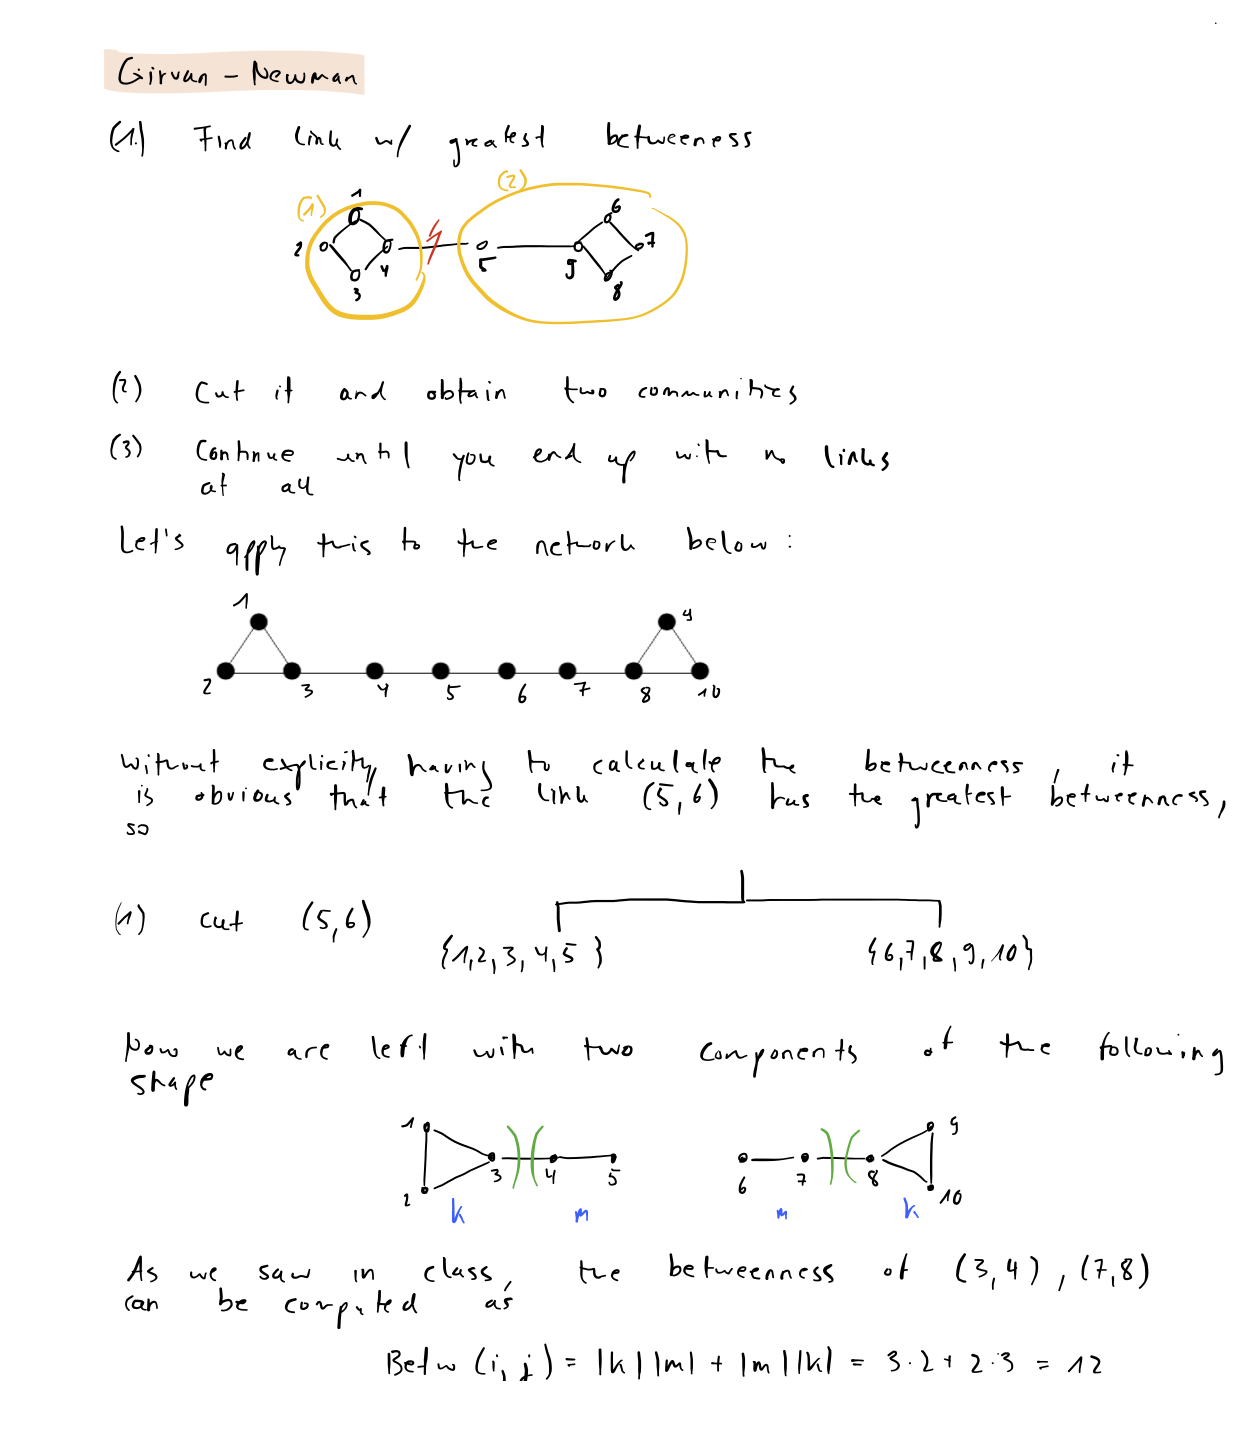 Girvan - Newman
(1.) Find link w/ greatest betweeness
(2)
(1)
1
6
2
7
4
5
9
3
8
(2) Cut it and obtain two communities
(3) Continue until you end up with no links
at all
Let's apply this to the network below:
1
9
2 3 4 5 6 7 8 10
Without explicity having to calculate the betweenness, it
is obvious that the link (5,6) has the greatest betweenness,
so
(1) cut (5,6)
{1,2,3,4,5} {6,7,8,9,10}
Now we are left with two components of the following
shape
1 9
3 4 5 6 7 8
2 10
k m m k
As we saw in class, the betweenness of (3,4), (7,8)
can be computed as
Betw (i,j) = |k||m| + |m||k| = 3·2 + 2·3 = 12